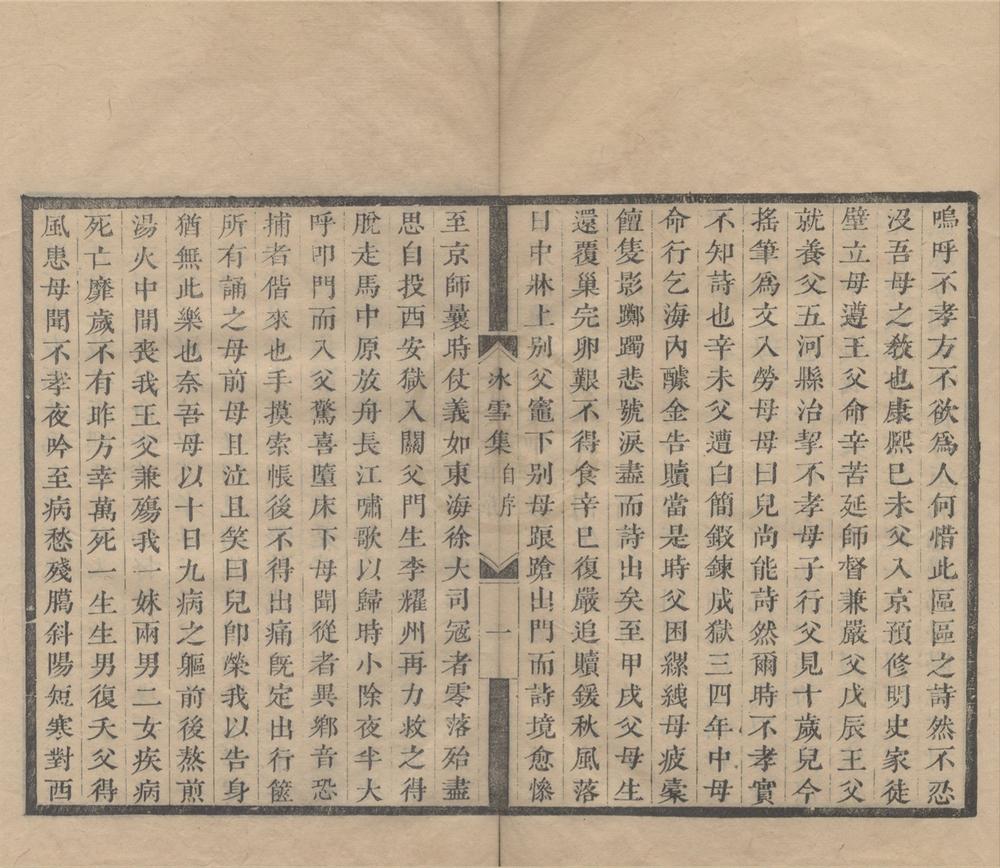 嗚呼不孝方不欲爲人何惜此區區之詩然不忍
沒吾母之教也康熙己未父入京預修明史家徒
壁立母遵王父命辛苦延師督兼嚴父戊辰王父
就養父五河縣治挈不孝母子行父見十歲兒今
搖筆爲文入勞母母曰兒尚能詩然爾時不孝實
不知詩也辛未父遭白簡鍛鍊成獄三四年中母
命行乞海內醵金告贖當是時父困縲絏母疲槖
饘隻影躑躅悲號淚盡而詩出矣至甲戌父母生
還覆巢完卵艱不得食辛巳復嚴追贖鍰秋風落
日中牀上別父竈下別母踉蹌出門而詩境愈慘
冰雪集 自序 一
至京師曩時仗義如東海徐大司寇者零落殆盡
思自投西安獄入關父門生李耀州再力救之得
脫走馬中原放舟長江嘯歌以歸時小除夜半大
呼叩門而入父驚喜墮床下母聞從者異鄉音恐
捕者偕來也手摸索帳後不得出痛旣定出行篋
所有誦之母前母且泣且笑曰兒卽榮我以告身
猶無此樂也奈吾母以十日九病之軀前後熬煎
湯火中間喪我王父兼殤我一妹兩男二女疾病
死亡靡歲不有昨方幸萬死一生生男復夭父得
風患母聞不孝夜吟至病愁殘臈斜陽短寒對西